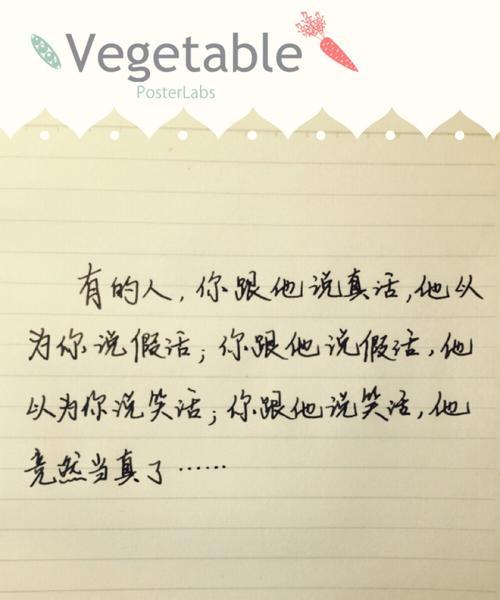 Vegetable
PosterLabs
有的人，你跟他说真话，他以
为你说假话；你跟他说假话，他
以为你说笑话；你跟他说笑话，他
竟然当真了……